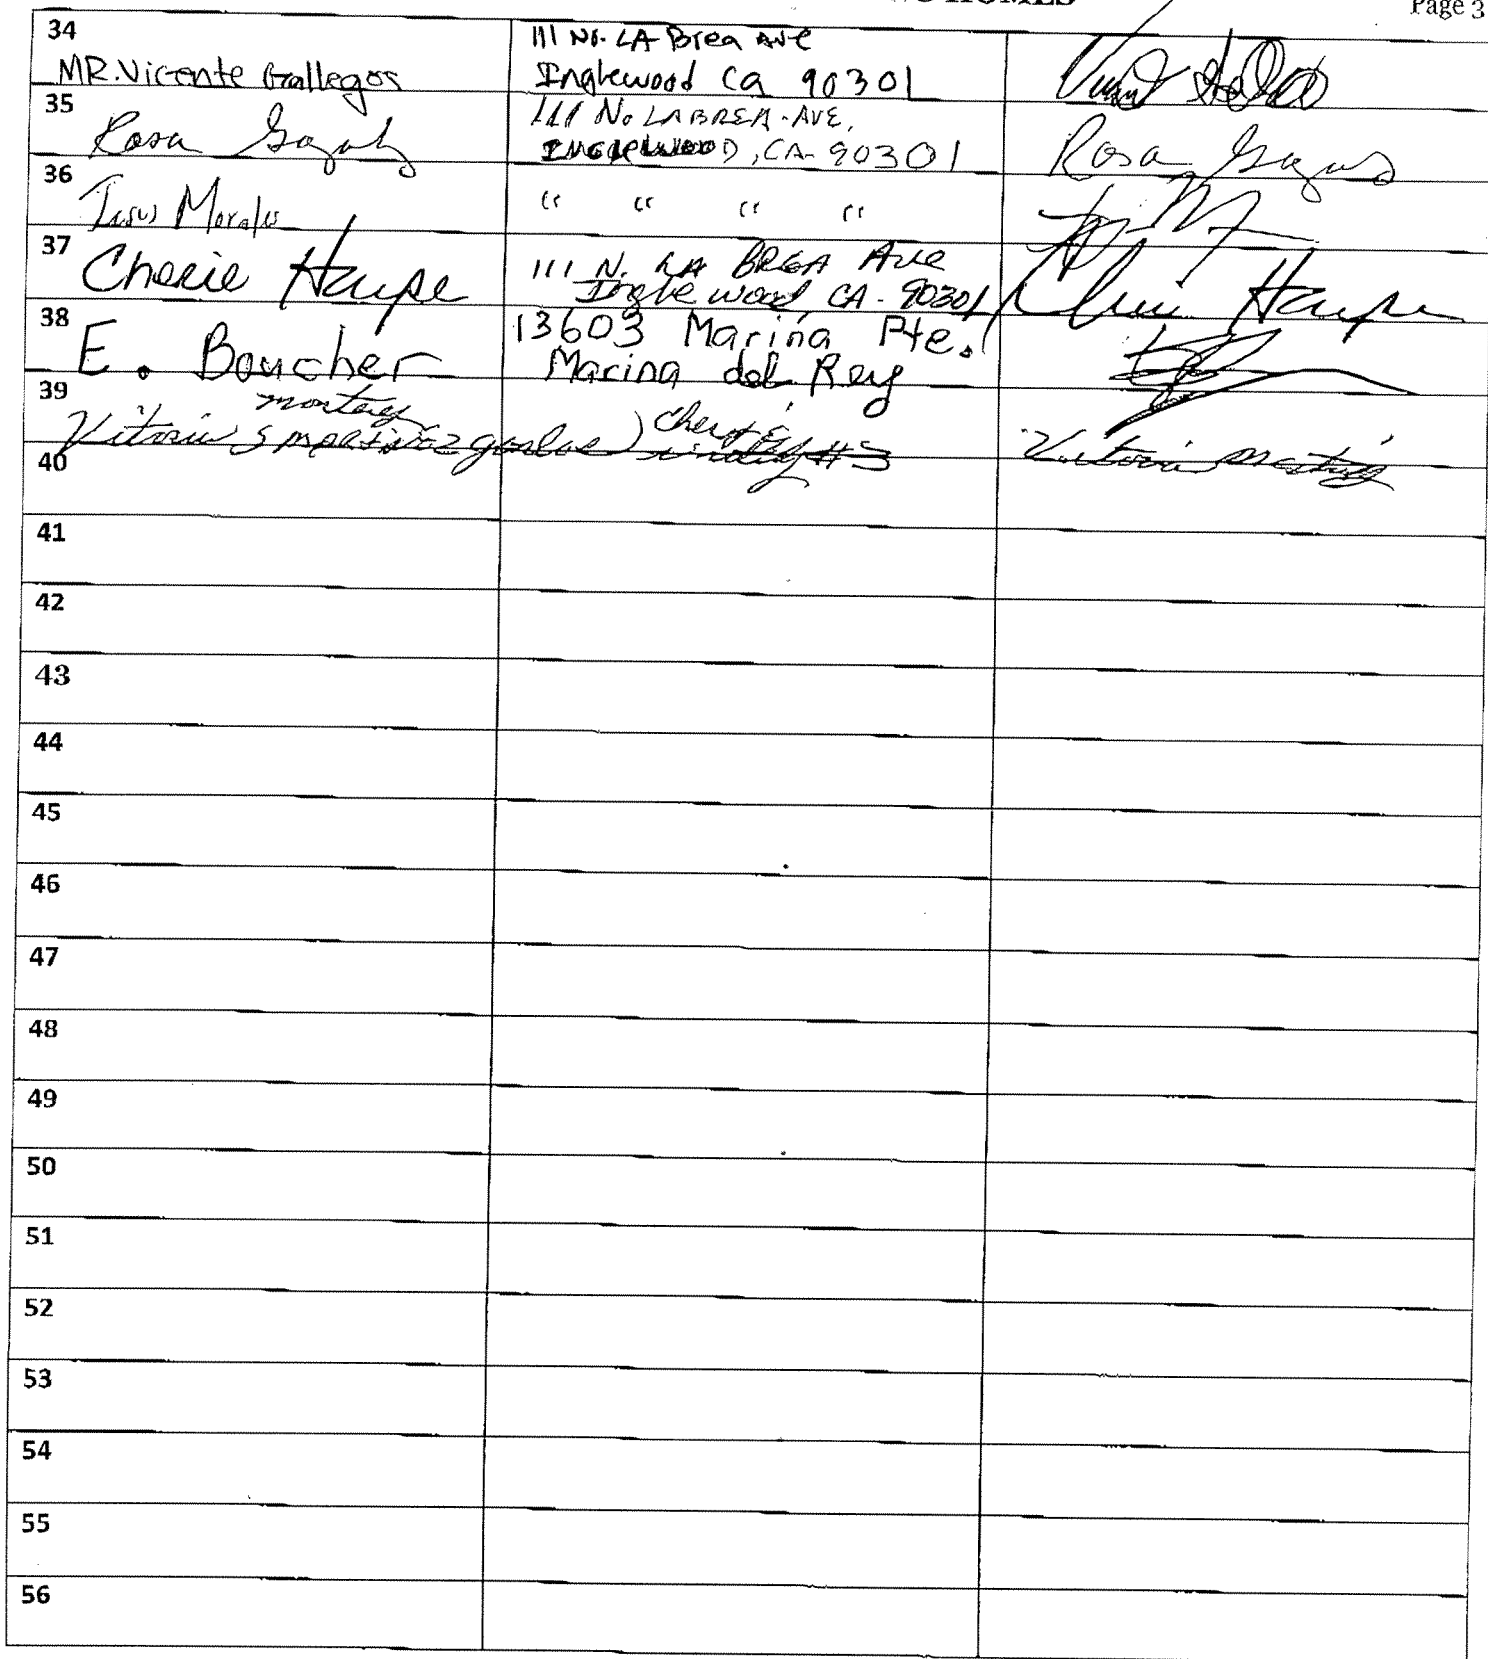 HOMES
Page 3
34
MR. Vicente Gallegos
111 No. LA Brea Ave
Inglewood Ca 90301
35
Rosa
111 No LA BREA-AVE,
INGLEWOOD, CA-90301
Rosa
36
Jesus Morales
" " " "
37
Cherie Haupe
111 N. LA BREA Ave
Inglewood, CA-90301
Haupe
38
E. Boucher
13603 Marina Pte.
Marina del Rey
39
Vitoria
#3
Vitoria
40
41
42
43
44
45
46
47
48
49
50
51
52
53
54
55
56